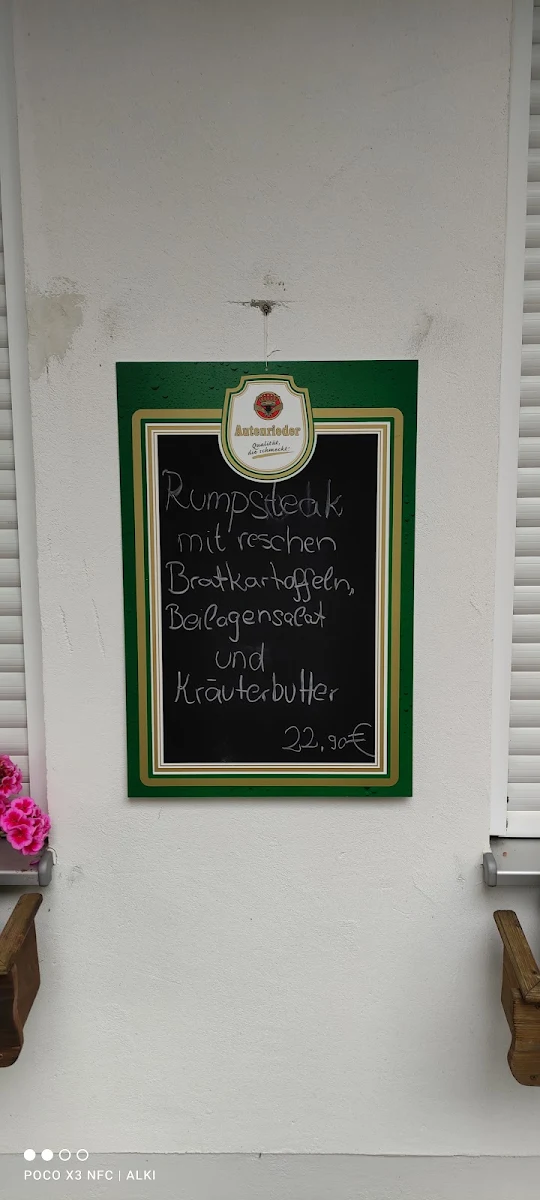 Autenrieder
Qualität,
die schmeckt
Rumpsteak
mit reschen
Bratkartoffeln,
Beilagensalat
und
Kräuterbutter
22,90€
POCO X3 NFC | ALKI